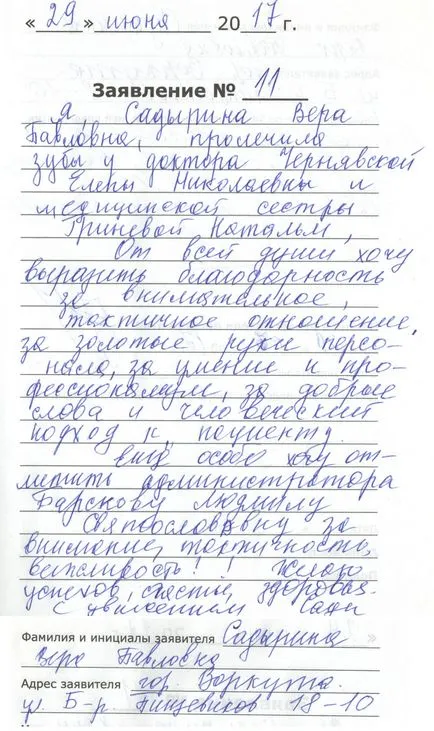 « 29 » июня 2017 г.
Заявление № 11
Я, Садырина Вера
Павловна, пролечила
зубы у доктора Чернявской
Елены Николаевны и
медицинской сестры
Гриневой Натальи,
От всей души хочу
выразить благодарность
за внимательное,
тактичное отношение,
за золотые руки персо-
нала, за умение и про-
фессионализм, за добрые
слова и человеческий
подход к пациенту.
Ещё особо хочу от-
метить администратора
Барскову Людмилу
Святославовну за
внимание, тактичность,
вежливость!! Желаю
успехов, счастья, здоровья.
С уважением Сади
Фамилия и инициалы заявителя Садырина
Вера Павловна
Адрес заявителя гор. Воркута.
ул. Б-р. Пищевиков 18-10